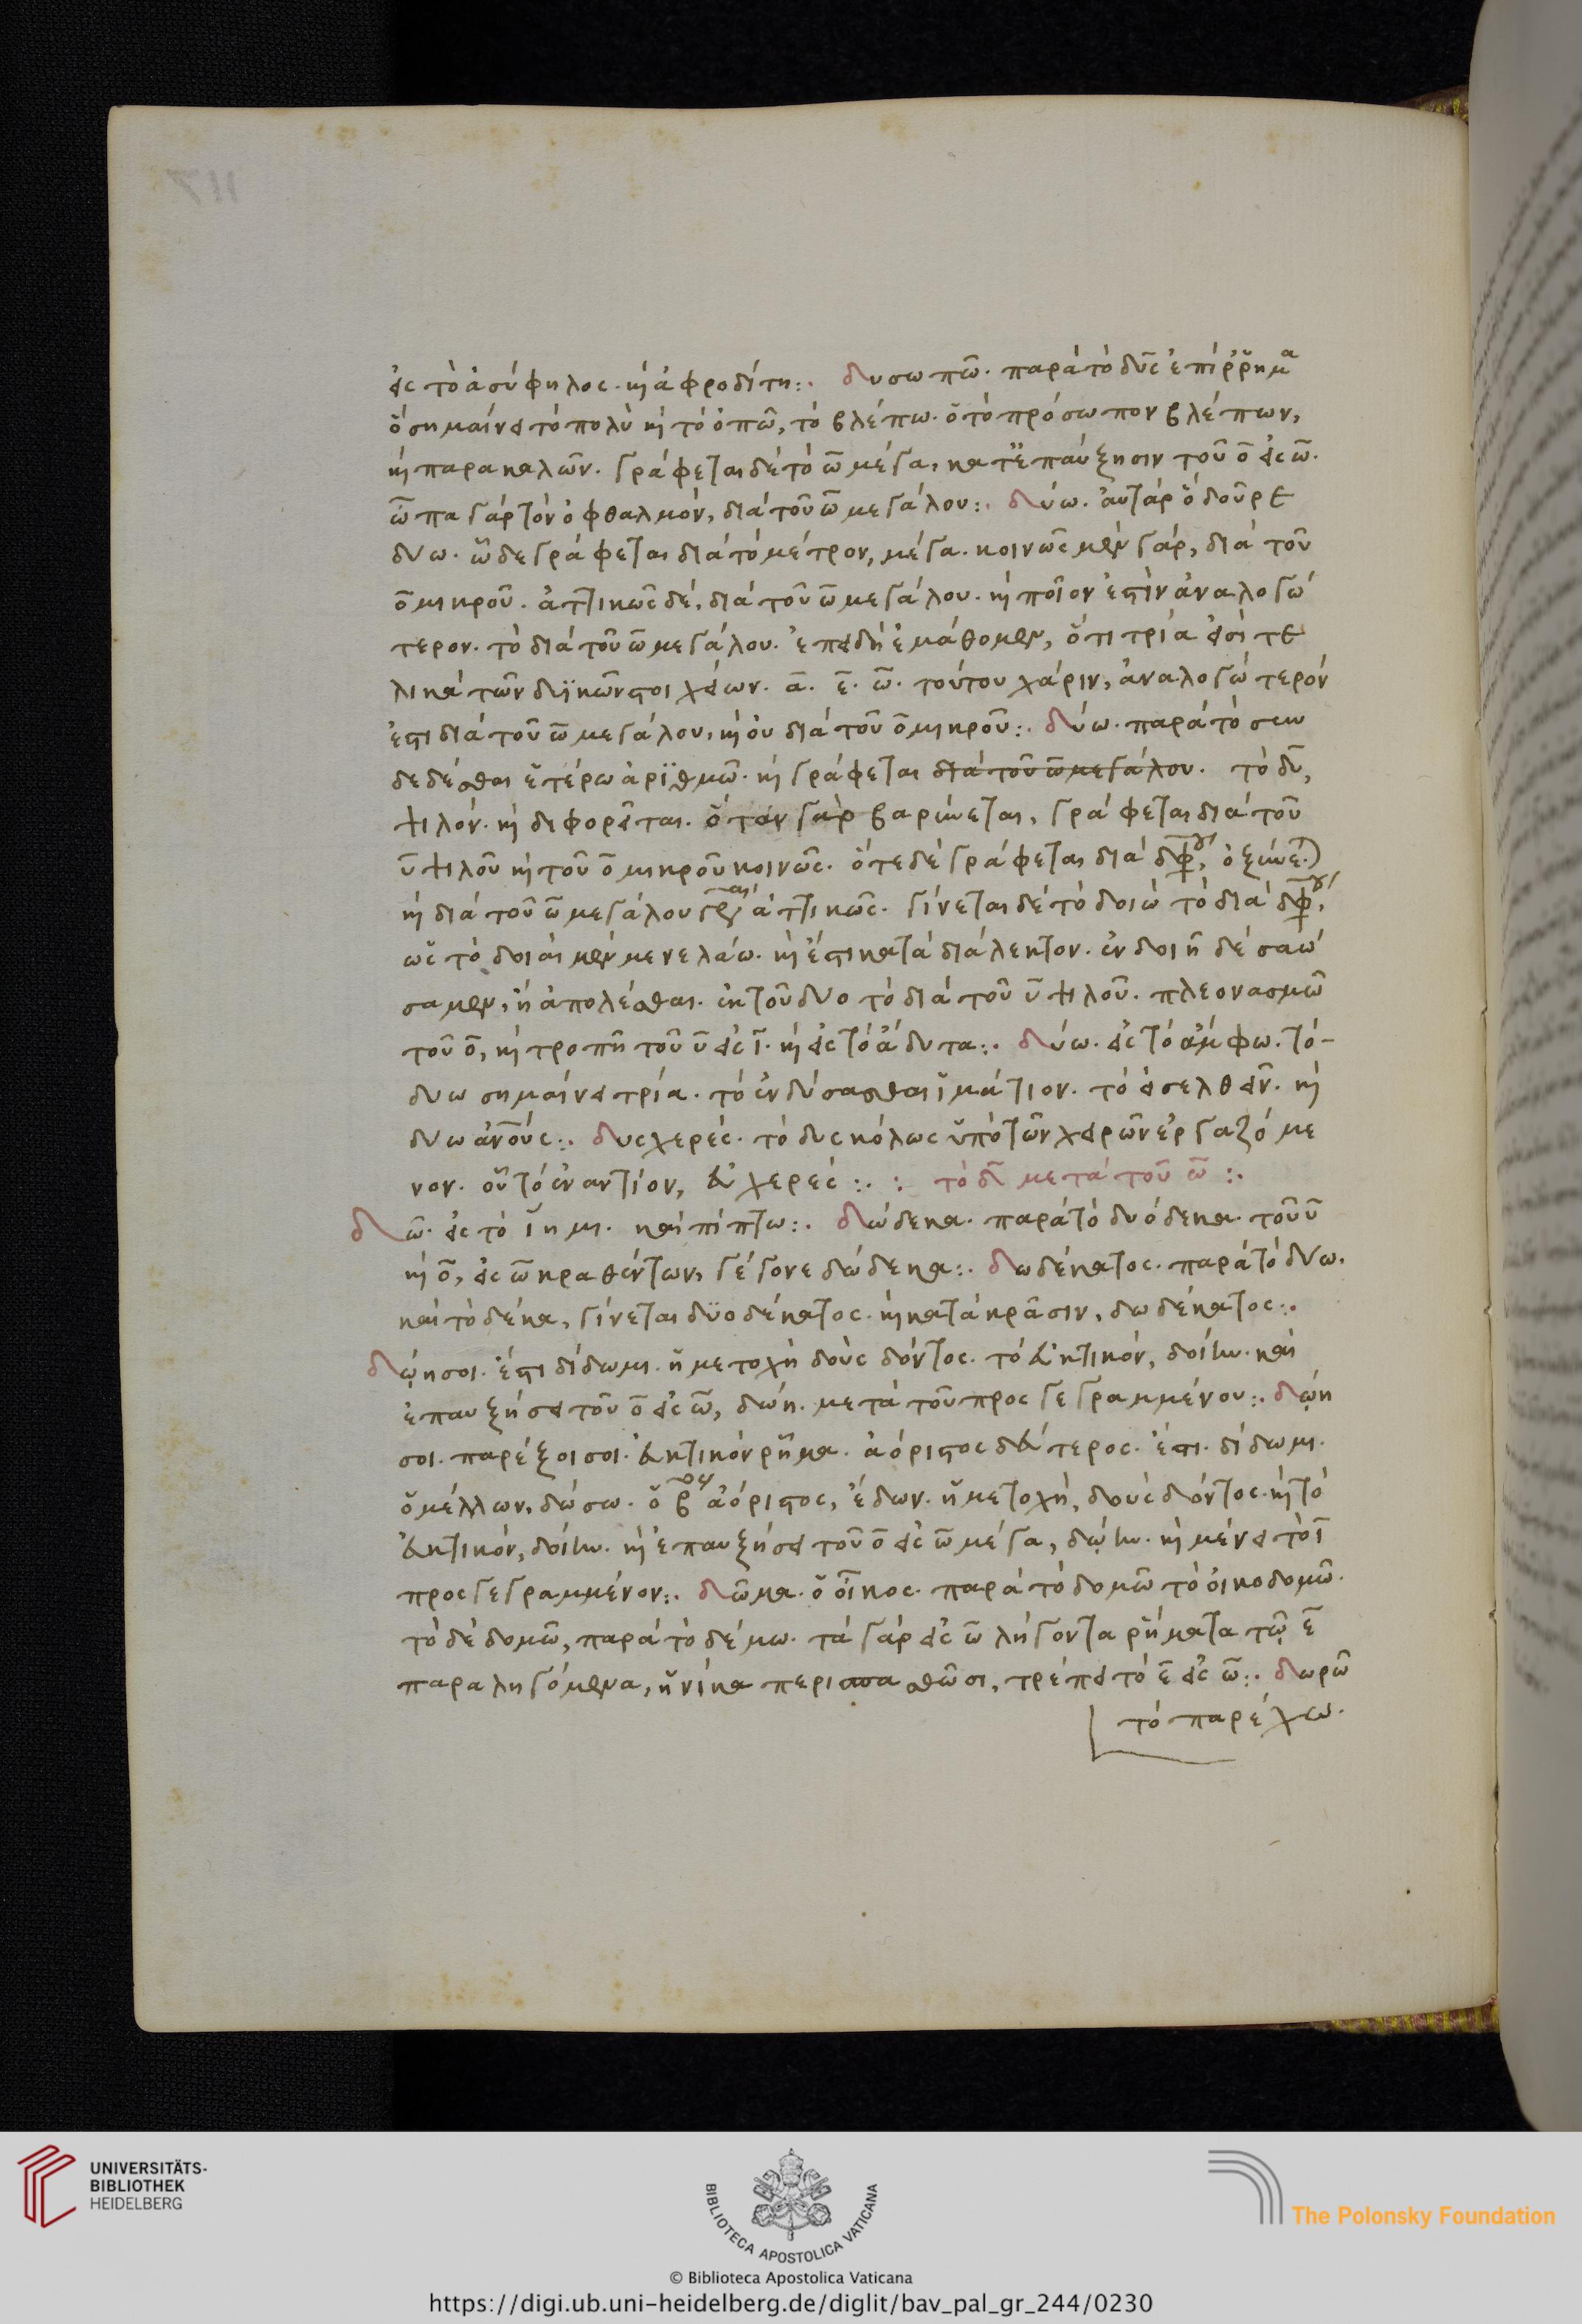 εἰς τὸ ἀσύφηλος. καὶ ἀφροδίτη:. δυσωπῶ. παρὰ τὸ δῦς ἐπίρρημα
ὃ σημαίνει τὸ πολὺ καὶ τὸ ὀπῶ, τὸ βλέπω. ὁ τὸ πρόσωπον βλέπων,
καὶ παρακαλῶν. γράφεται δὲ τὸ ω μέγα, κατ' ἐπαύξησιν τοῦ ο εἰς ω.
ὦπα γὰρ τὸν ὀφθαλμόν, διὰ τοῦ ω μεγάλου:. δύω. αὐτὰρ ὁ δοῦρε
δυω. ὧδε γράφεται διὰ τὸ μέτρον, μέγα. κοινῶς μὲν γάρ, διὰ τοῦ
ο μικροῦ. ἀττικῶς δέ, διὰ τοῦ ω μεγάλου. καὶ ποῖον ἐστὶν ἀναλογώ
τερον. τὸ διὰ τοῦ ω μεγάλου. ἐπειδὴ ἐμάθομεν, ὅτι τρία εἰσὶ τε
λικὰ τῶν δυϊκῶν στοιχείων. α. ε. ω. τούτου χάριν, ἀναλογώτερόν
ἐστι διὰ τοῦ ω μεγάλου, καὶ οὐ διὰ τοῦ ο μικροῦ:. δύω. παρὰ τὸ συν
δεδέσθαι ἑτέρω ἀριθμῶ. καὶ γράφεται διὰ τοῦ ω μεγάλου. τὸ δυ,
ψιλόν. καὶ διφορεῖται. ὅταν γὰρ βαρύνεται, γράφεται διὰ τοῦ
υ ψιλοῦ καὶ τοῦ ο μικροῦ κοινῶς. ὅτε δὲ γράφεται διὰ διφθ, ὀξύνε)
καὶ διὰ τοῦ ω μεγάλου ἀττικῶς. γίνεται δὲ τὸ δοιὼ τὸ διὰ διφθ,
ὡς τὸ δοιαὶ μὲν μενελάω. καὶ ἔστι κατὰ διάλεκτον. ἐν δοιῆ δὲ σαώ
σαμεν, ἢ ἀπολέσθαι. ἐκ τοῦ δυο τὸ διὰ τοῦ υ ψιλοῦ. πλεονασμῶ
τοῦ ο, καὶ τροπῆ τοῦ υ εἰς ι. καὶ εἰς τὸ ἄδυτα:. δύω. εἰς τὸ ἄμφω. τὸ-
δυω σημαίνει τρία. τὸ ἐνδύσασθαι ἱμάτιον. τὸ εἰσελθεῖν. καὶ
δυω ἀνους:. δυσχερές. τὸ δυσκόλως ὑπὸ τῶν χειρῶν ἐργαζόμε
νον. οὗ τὸ ἐναντίον, εὐχερές:. : τὸ δ μετὰ τοῦ ω :.
δῶ. εἰς τὸ ἵημι. καὶ πίπτω:. δώδεκα. παρὰ τὸ δυόδεκα. τοῦ υ
καὶ ο, εἰς ω κραθέντων, γέγονε δώδεκα:. δωδέκατος. παρὰ τὸ δυω.
καὶ τὸ δέκα, γίνεται δυοδέκατος. καὶ κατὰ κρᾶσιν, δωδέκατος:.
δῴησοι. ἔστι δίδωμι. ἡ μετοχὴ δοὺς δόντος. τὸ εὐκτικόν, δοίην. καὶ
ἐπαυξήσει τοῦ ο εἰς ω, δώη. μετὰ τοῦ προσγεγραμμένου:. δῴη
σοι. παρέξοι σοι. εὐκτικὸν ρῆμα. ἀόριστος δεύτερος. ἔστι. δίδωμι.
ὁ μέλλων, δώσω. ὁ β ἀόριστος, ἔδων. ἡ μετοχή, δοὺς δόντος. καὶ τὸ
εὐκτικόν, δοίην. καὶ ἐπαυξήσει τοῦ ο εἰς ω μέγα, δῴην. καὶ μένει τὸ ι
προσγεγραμμένον:. δῶμα. ὁ οἶκος. παρὰ τὸ δομῶ τὸ οἰκοδομῶ.
τὸ δὲ δομῶ, παρὰ τὸ δέμω. τὰ γὰρ εἰς ω λήγοντα ρήματα τῷ ε
παραληγόμενα, ἡνίκα περισπασθῶσι, τρέπει τὸ ε εἰς ω:. δωρῶ
τὸ παρέχω.
UNIVERSITÄTS-
BIBLIOTHEK
HEIDELBERG
BIBLIOTECA APOSTOLICA VATICANA
The Polonsky Foundation
© Biblioteca Apostolica Vaticana
https://digi.ub.uni-heidelberg.de/diglit/bav_pal_gr_244/0230